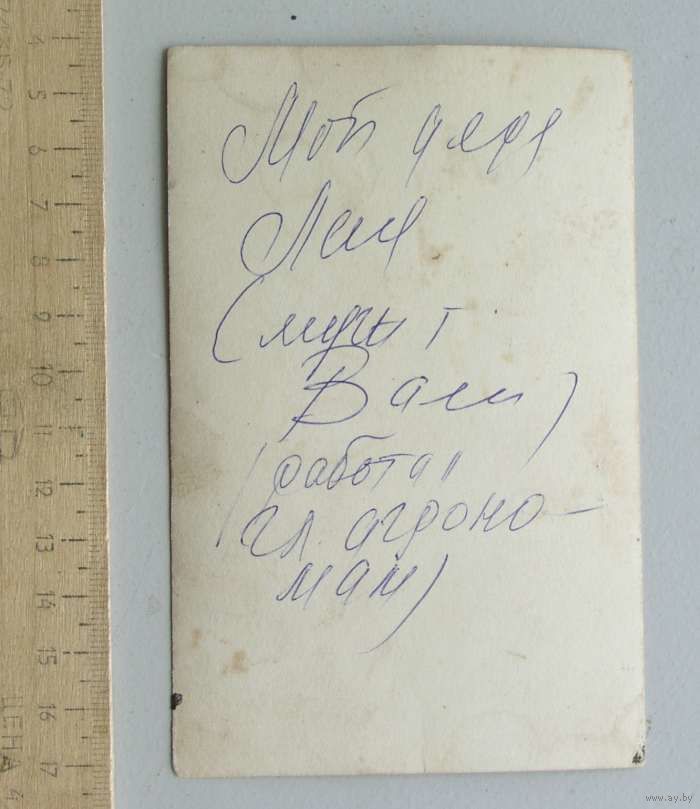 Мой дядя
Лёня
(муж т
Вали)
(работал
гл. агроно-
мам)
4
5
6
7
8
9
10
11
12
13
14
15
16
17
ЦЕНА
www.ay.by